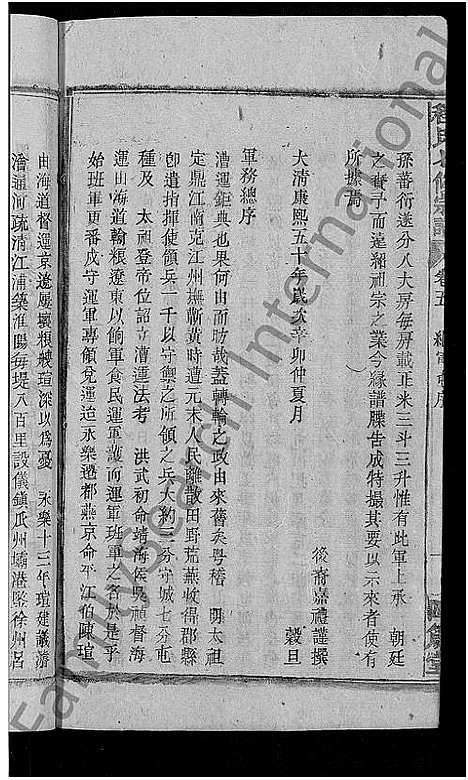 孫蕃衍遂分八大房每房載正米三斗三升惟有此軍上承　朝廷
之賣子而邃紹祖宗之業今緣譜牒告成特撮其要以示來者使有
所據焉
大清康熙五十年歲次辛卯仲夏月
後裔嘉禮謹撰
穀旦
軍務總序
漕運鉅典也果何由而昉哉蓋轉輸之政由來舊矣粤稽　明太祖
定鼎江南克江州撫蘄黃時遭元末人民離散田野荒蕪收得郡縣
卽遺指揮使領兵一千以守禦之所領之兵大約三分守城七分屯
種及　太祖登帝位詔立漕運法考　洪武初命靖海侯吳禎督海
運山海道輸粮遼東以餉軍食民運軍護而運軍班軍之名於是乎
始班軍更番戍守運軍專領兌運迨永樂遷都燕京命平江伯陳瑄
由海道督運京遼屢壞粮艘瑄深以爲憂　永樂十三年瑄建議濬
濬通河疏清江浦築淮陽每堤八百里設儀鎮瓜州壩港鑿徐州呂
卷五
FamilySearch International